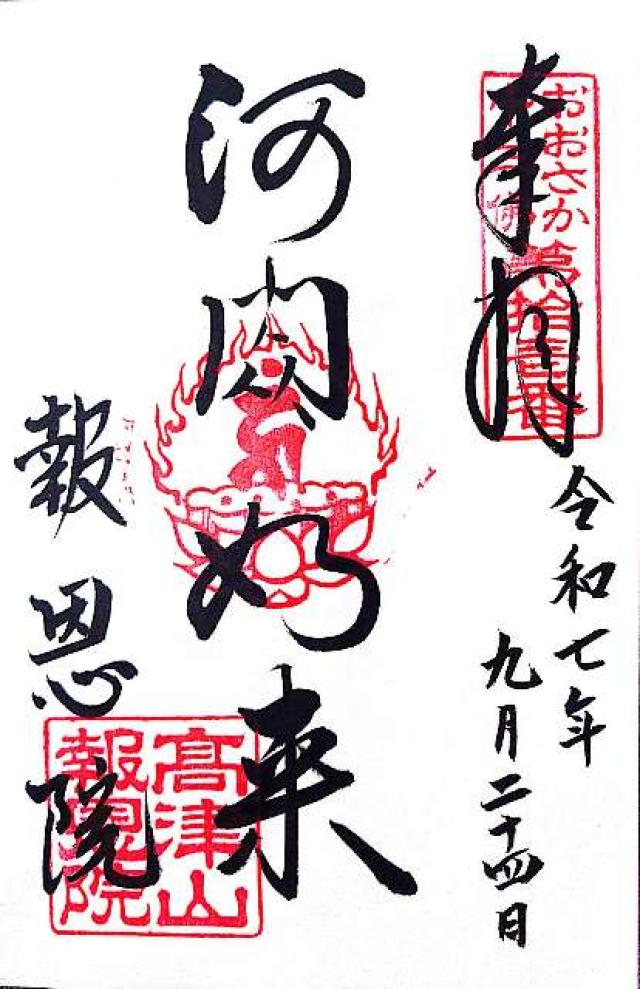 奉拝
おおさか第拾壹番
令和七年
九月二十四日
河閦如来
報恩院
高津山
報恩院